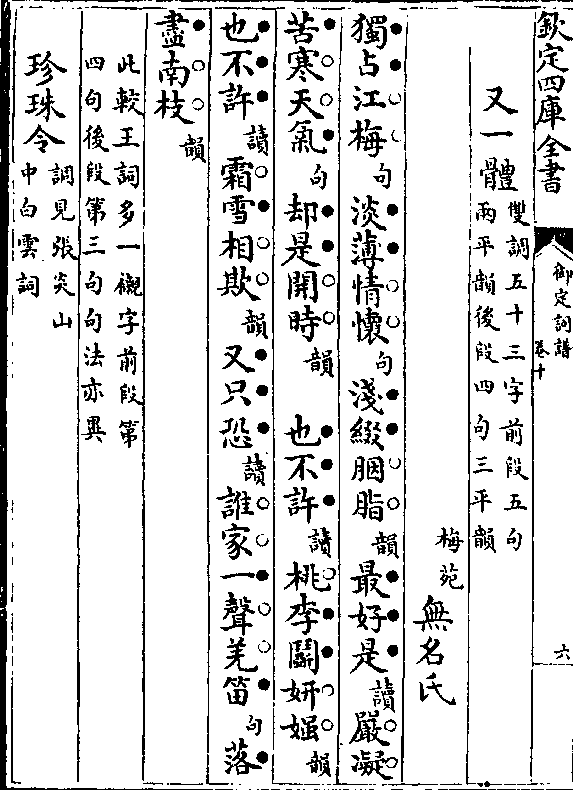 欽定四庫全書
御定詞譜
卷十
六
又一體雙調五十三字前段五句
兩平韻後段四句三平韻
梅苑無名氏
獨占江梅句淡薄情懷句淺綴胭脂韻最好是讀嚴凝
苦寒天氣句却是開時韻　也不許讀桃李鬭妍媸韻
也不許讀霜雪相欺韻又只恐讀誰家一聲羌笛句落
盡南枝韻
此較王詞多一襯字前段第
四句後段第三句句法亦異
珍珠令調見張炎山
中白雲詞